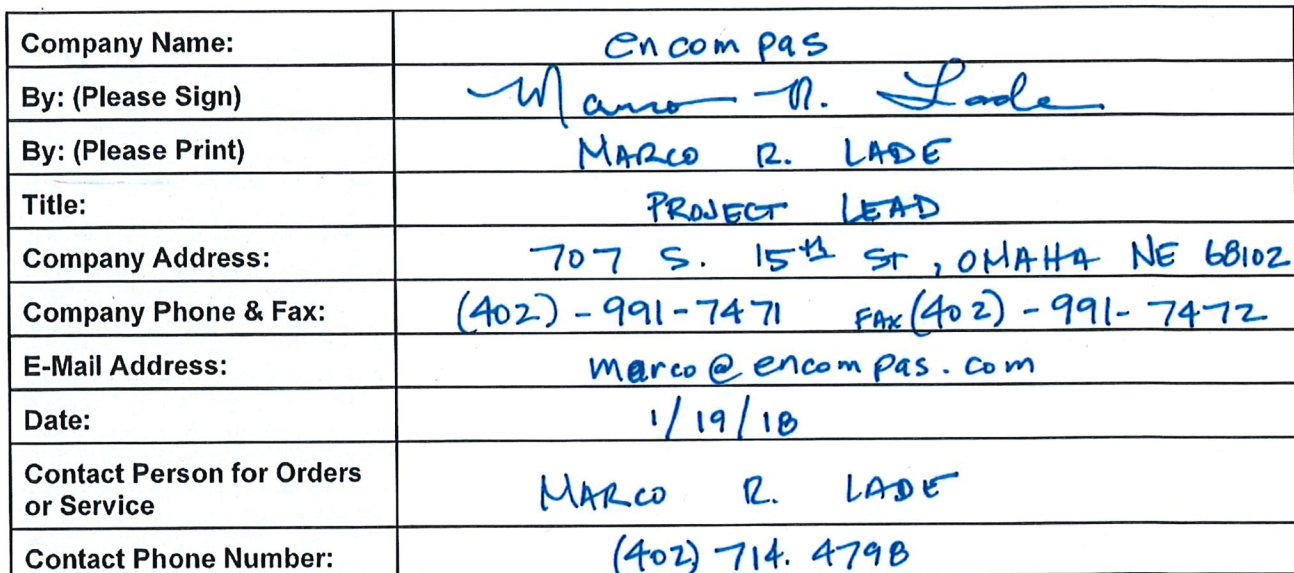 Company Name: encompas
By: (Please Sign) Marco R. Lade
By: (Please Print) MARCO R. LADE
Title: PROJECT LEAD
Company Address: 707 S. 15th ST, OMAHA NE 68102
Company Phone & Fax: (402)-991-7471 FAX (402)-991-7472
E-Mail Address: marco@encompas.com
Date: 1/19/18
Contact Person for Orders
or Service MARCO R. LADE
Contact Phone Number: (402) 714. 4798